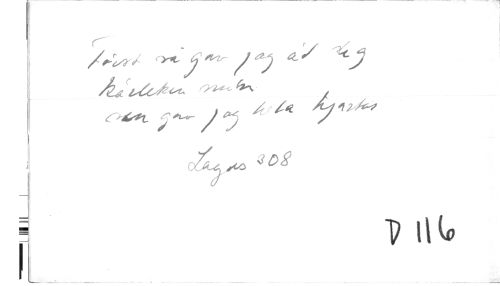 Först så gav jag åd deg
kärleken min
sen gav jag hela hjartas
Lagus 308
D 116